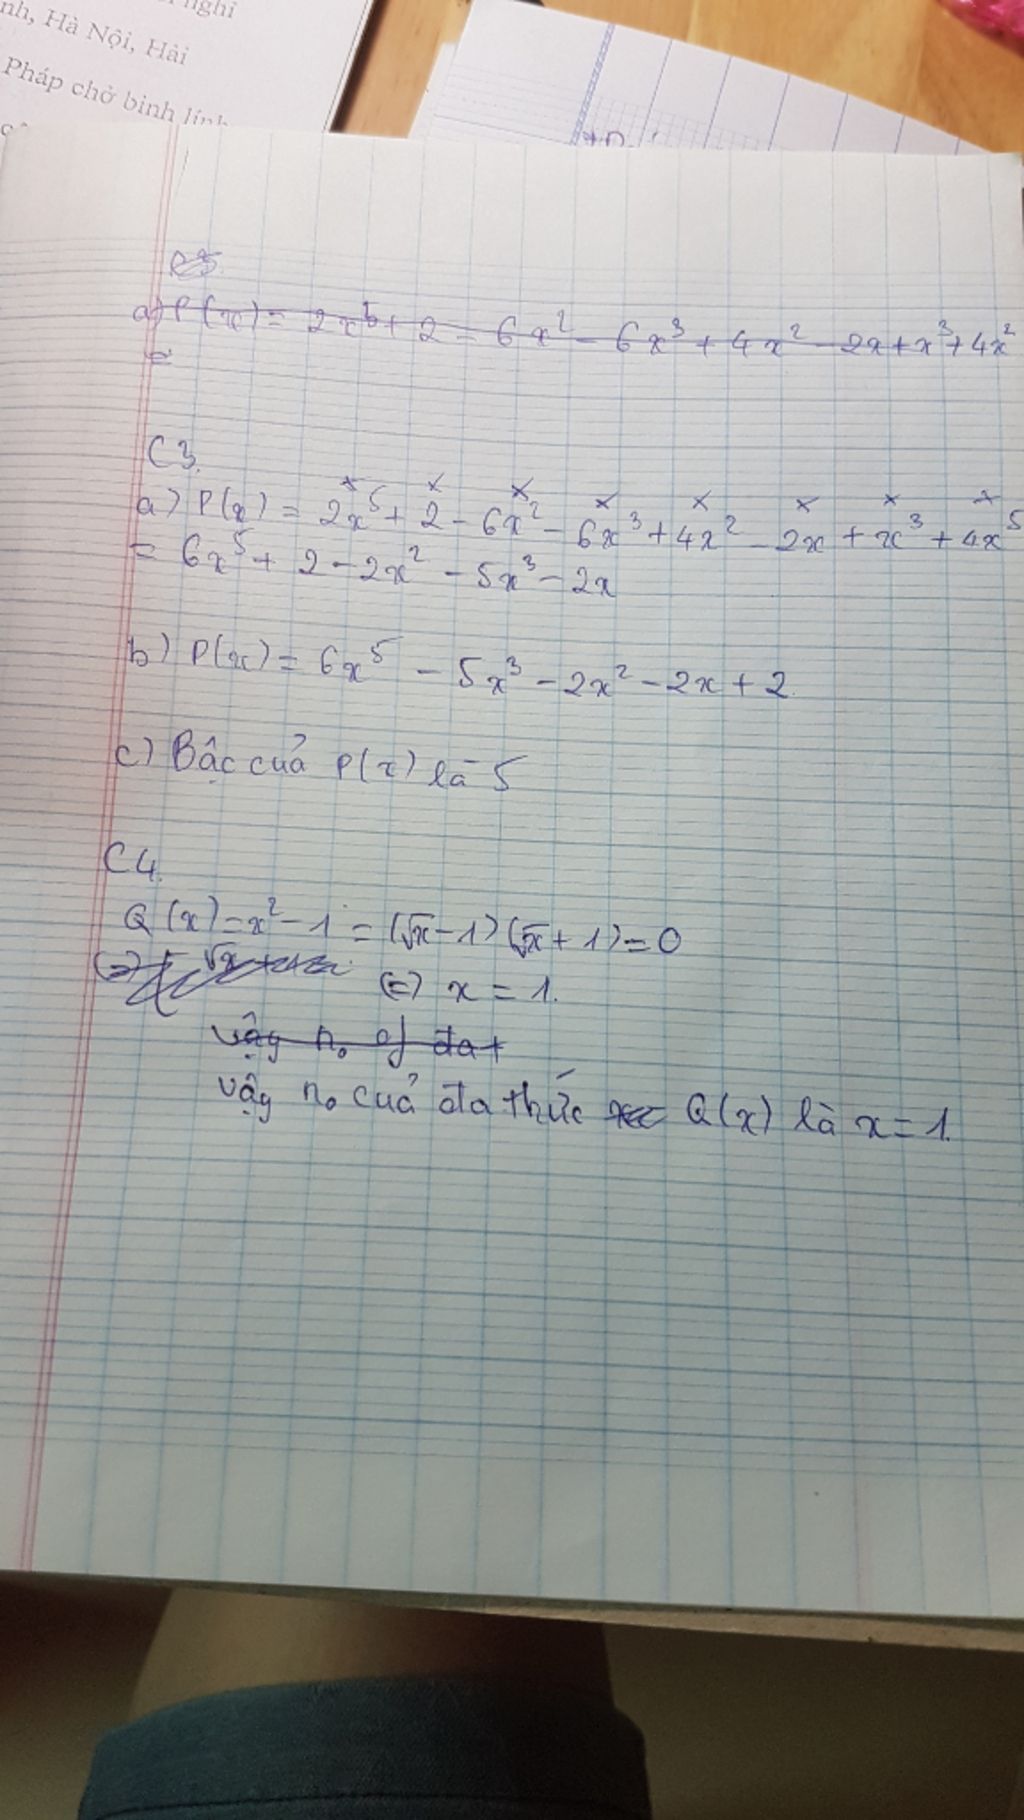 nh, Hà Nội, Hải
Pháp chở binh lính
a) P(x) = 2x⁵ + 2 - 6x² - 6x³ + 4x² - 2x + x³ + 4x²
=
C3.
a) P(x) = 2x⁵ + 2 - 6x² - 6x³ + 4x² - 2x + x³ + 4x⁵
= 6x⁵ + 2 - 2x² - 5x³ - 2x
b) P(x) = 6x⁵ - 5x³ - 2x² - 2x + 2.
c) Bậc của P(x) là 5
C4.
Q(x) = x² - 1 = (√x - 1)(√x + 1) = 0
(=) x = 1.
Vậy n₀ đa t
Vậy n₀ của đa thức Q(x) là x = 1.